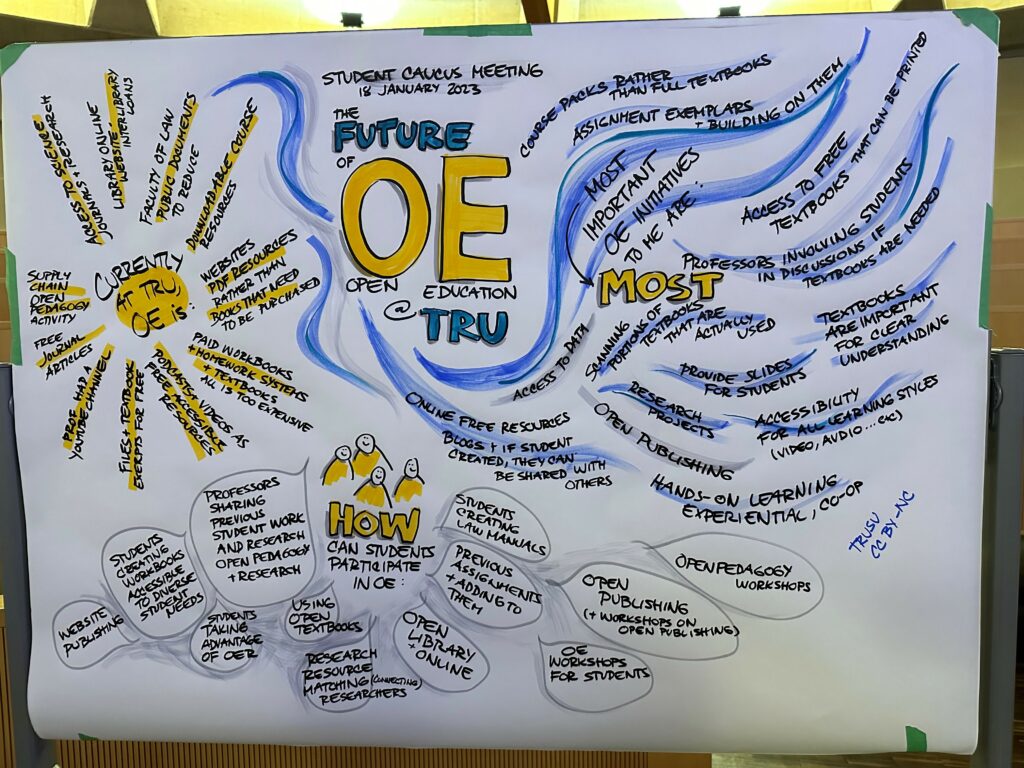 STUDENT CAUCUS MEETING
18 JANUARY 2023
THE
FUTURE
OF
OE
OPEN EDUCATION
@ TRU
CURRENTLY
AT TRU,
OE is:
SUPPLY
CHAIN
OPEN
PEDAGOGY
ACTIVITY
ACCESS TO SCIENCE
JOURNALS + RESEARCH
LIBRARY ONLINE
WEBSITE
INTERLIBRARY
LOANS
FACULTY OF LAW
PUBLIC DOCUMENTS
TO REDUCE
DOWNLOADABLE COURSE
RESOURCES
WEBSITES
PDF RESOURCES
RATHER THAN
BOOKS THAT NEED
TO BE PURCHASED
PAID WORKBOOKS
+ HOMEWORK SYSTEMS
+ TEXTBOOKS
ALL IS TOO EXPENSIVE
PODCASTS, VIDEOS AS
FREE ACCESSIBLE
RESOURCES
FILES + TEXTBOOK
EXCERPTS FOR FREE
PROF HAD A
YOUTUBE CHANNEL
FREE
JOURNAL
ARTICLES
MOST
IMPORTANT
OE INITIATIVES
TO ME ARE:
MOST
COURSE PACKS RATHER
THAN FULL TEXTBOOKS
ASSIGNMENT EXEMPLARS
+ BUILDING ON THEM
ACCESS TO FREE
TEXTBOOKS THAT CAN BE PRINTED
PROFESSORS INVOLVING STUDENTS
IN DISCUSSIONS IF
TEXTBOOKS ARE NEEDED
TEXTBOOKS
ARE IMPORTANT
FOR CLEAR
UNDERSTANDING
SCANNING
PORTIONS OF
TEXTBOOKS
THAT ARE
ACTUALLY
USED
ACCESS TO DATA
PROVIDE SLIDES
FOR STUDENTS
RESEARCH
PROJECTS
ACCESSIBILITY
FOR ALL LEARNING STYLES
(VIDEO, AUDIO... etc)
OPEN PUBLISHING
HANDS-ON LEARNING
EXPERIENTIAL, CO-OP
ONLINE FREE RESOURCES
BLOGS + IF STUDENT
CREATED, THEY CAN
BE SHARED WITH
OTHERS
HOW
CAN STUDENTS
PARTICIPATE
IN OE:
WEBSITE
PUBLISHING
STUDENTS
CREATING
WORKBOOKS
ACCESSIBLE
TO DIVERSE
STUDENT
NEEDS
PROFESSORS
SHARING
PREVIOUS
STUDENT WORK
AND RESEARCH
OPEN PEDAGOGY
+ RESEARCH
STUDENTS
TAKING
ADVANTAGE
OF OER
USING
OPEN
TEXTBOOKS
RESEARCH
RESOURCE
MATCHING (CONNECTING)
RESEARCHERS
OPEN
LIBRARY
+ ONLINE
STUDENTS
CREATING
LAW MANUALS
PREVIOUS
ASSIGNMENTS
+ ADDING TO
THEM
OPEN
PUBLISHING
(+ WORKSHOPS ON
OPEN PUBLISHING)
OE
WORKSHOPS
FOR STUDENTS
OPEN PEDAGOGY
WORKSHOPS
TRUSU
CC BY-NC